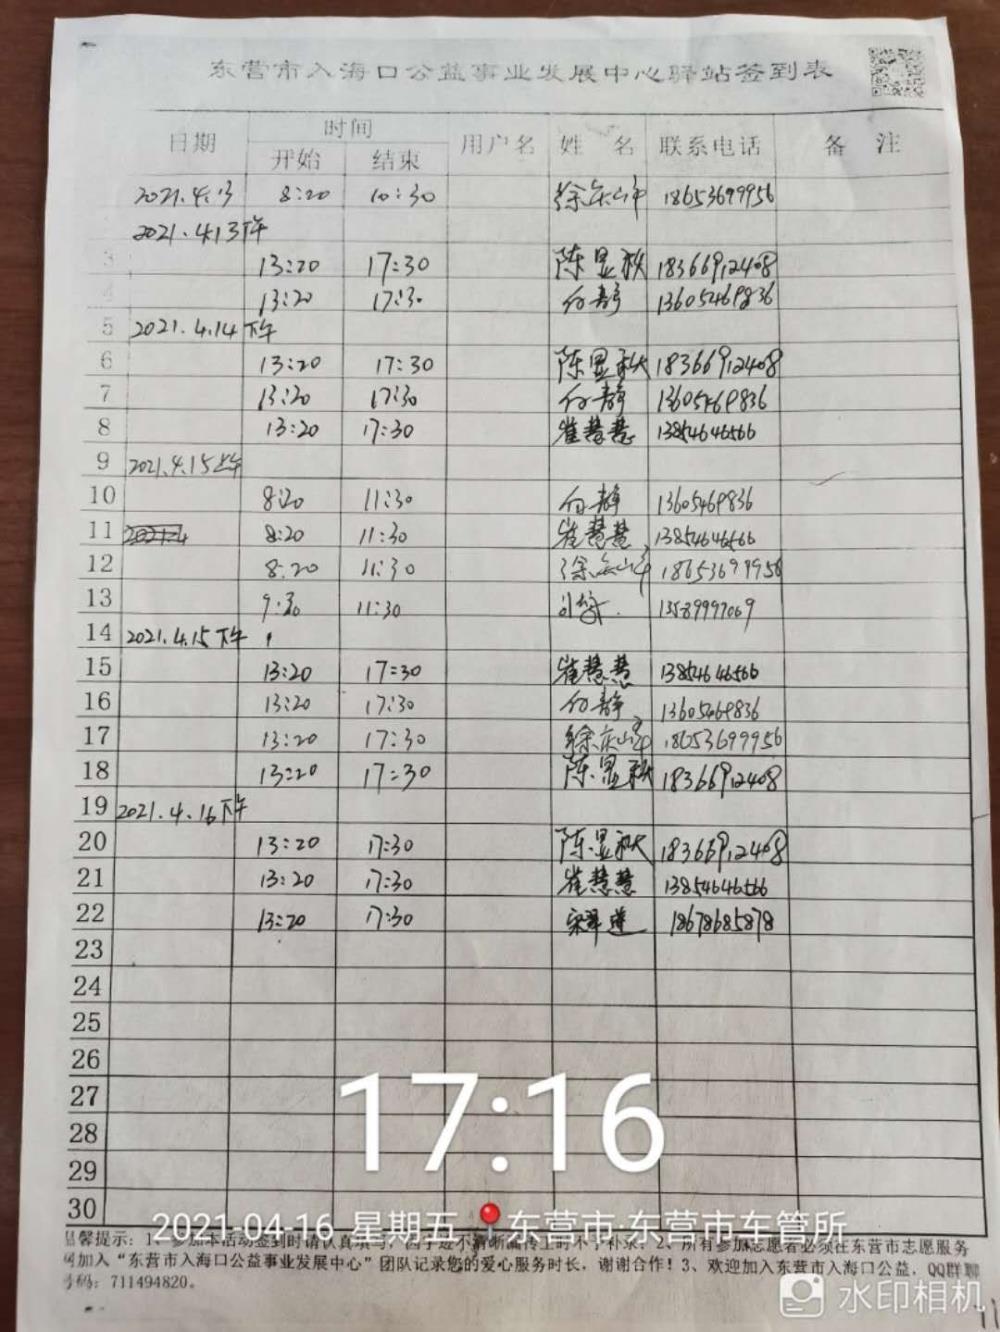 东营市入海口公益事业发展中心驿站签到表
日期 时间 用户名 姓 名 联系电话 备 注
开始 结束
2021.4.13 8:20 10:30 徐庆山 18653699956
2021.4.13下午
3 13:20 17:30 陈显秋 18366912408
4 13:20 17:30 白静 13605469836
5 2021.4.14下午
6 13:20 17:30 陈显秋 18366912408
7 13:20 17:30 白静 13605469836
8 13:20 17:30 崔慧慧 13854646566
9 2021.4.15上午
10 8:20 11:30 白静 13605469836
11 8:20 11:30 崔慧慧 13854646566
12 8:20 11:30 徐庆山 18653699956
13 9:30 11:30 13589997069
14 2021.4.15下午
15 13:20 17:30 崔慧慧 13854646566
16 13:20 17:30 白静 13605469836
17 13:20 17:30 徐庆山 18653699956
18 13:20 17:30 陈显秋 18366912408
19 2021.4.16下午
20 13:20 17:30 陈显秋 18366912408
21 13:20 17:30 崔慧慧 13854646566
22 13:20 17:30 宋翠莲 18678685878
23
24
25
26
27
28
29
30
17:16
2021-04-16 星期五 东营市·东营市车管所
温馨提示：1、参加本活动签到时请认真填写，因字迹不清晰漏传工时不予补录；2、所有参加志愿者必须在东营市志愿服务
网加入“东营市入海口公益事业发展中心”团队记录您的爱心服务时长，谢谢合作！3、欢迎加入东营市入海口公益，QQ群聊
号码：711494820。
水印相机